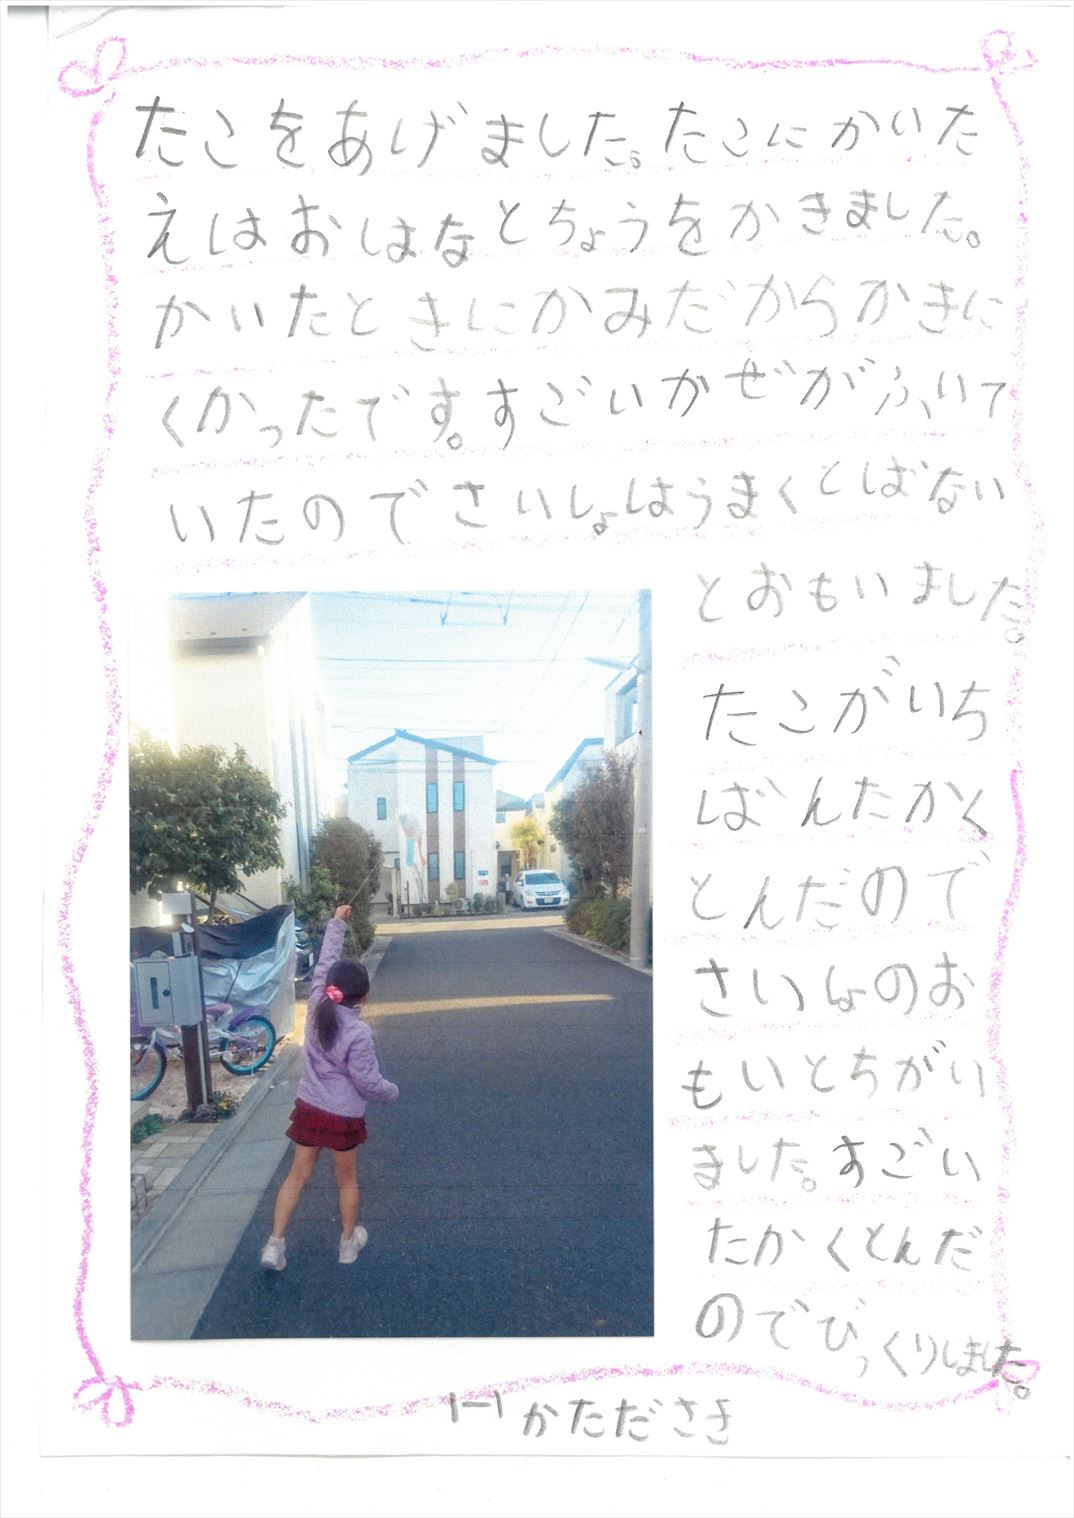 たこをあげました。たこにかいた
えはおはなとちょうをかきました。
かいたときにかみだからかきに
くかったです。すごいかぜがふいて
いたのでさいしょはうまくとばない
とおもいました。
たこがいち
ばんたかく
とんだので
さいしょのお
もいとちがい
ました。すごい
たかくとんだ
のでびっくりしました。
1-1 かただささ